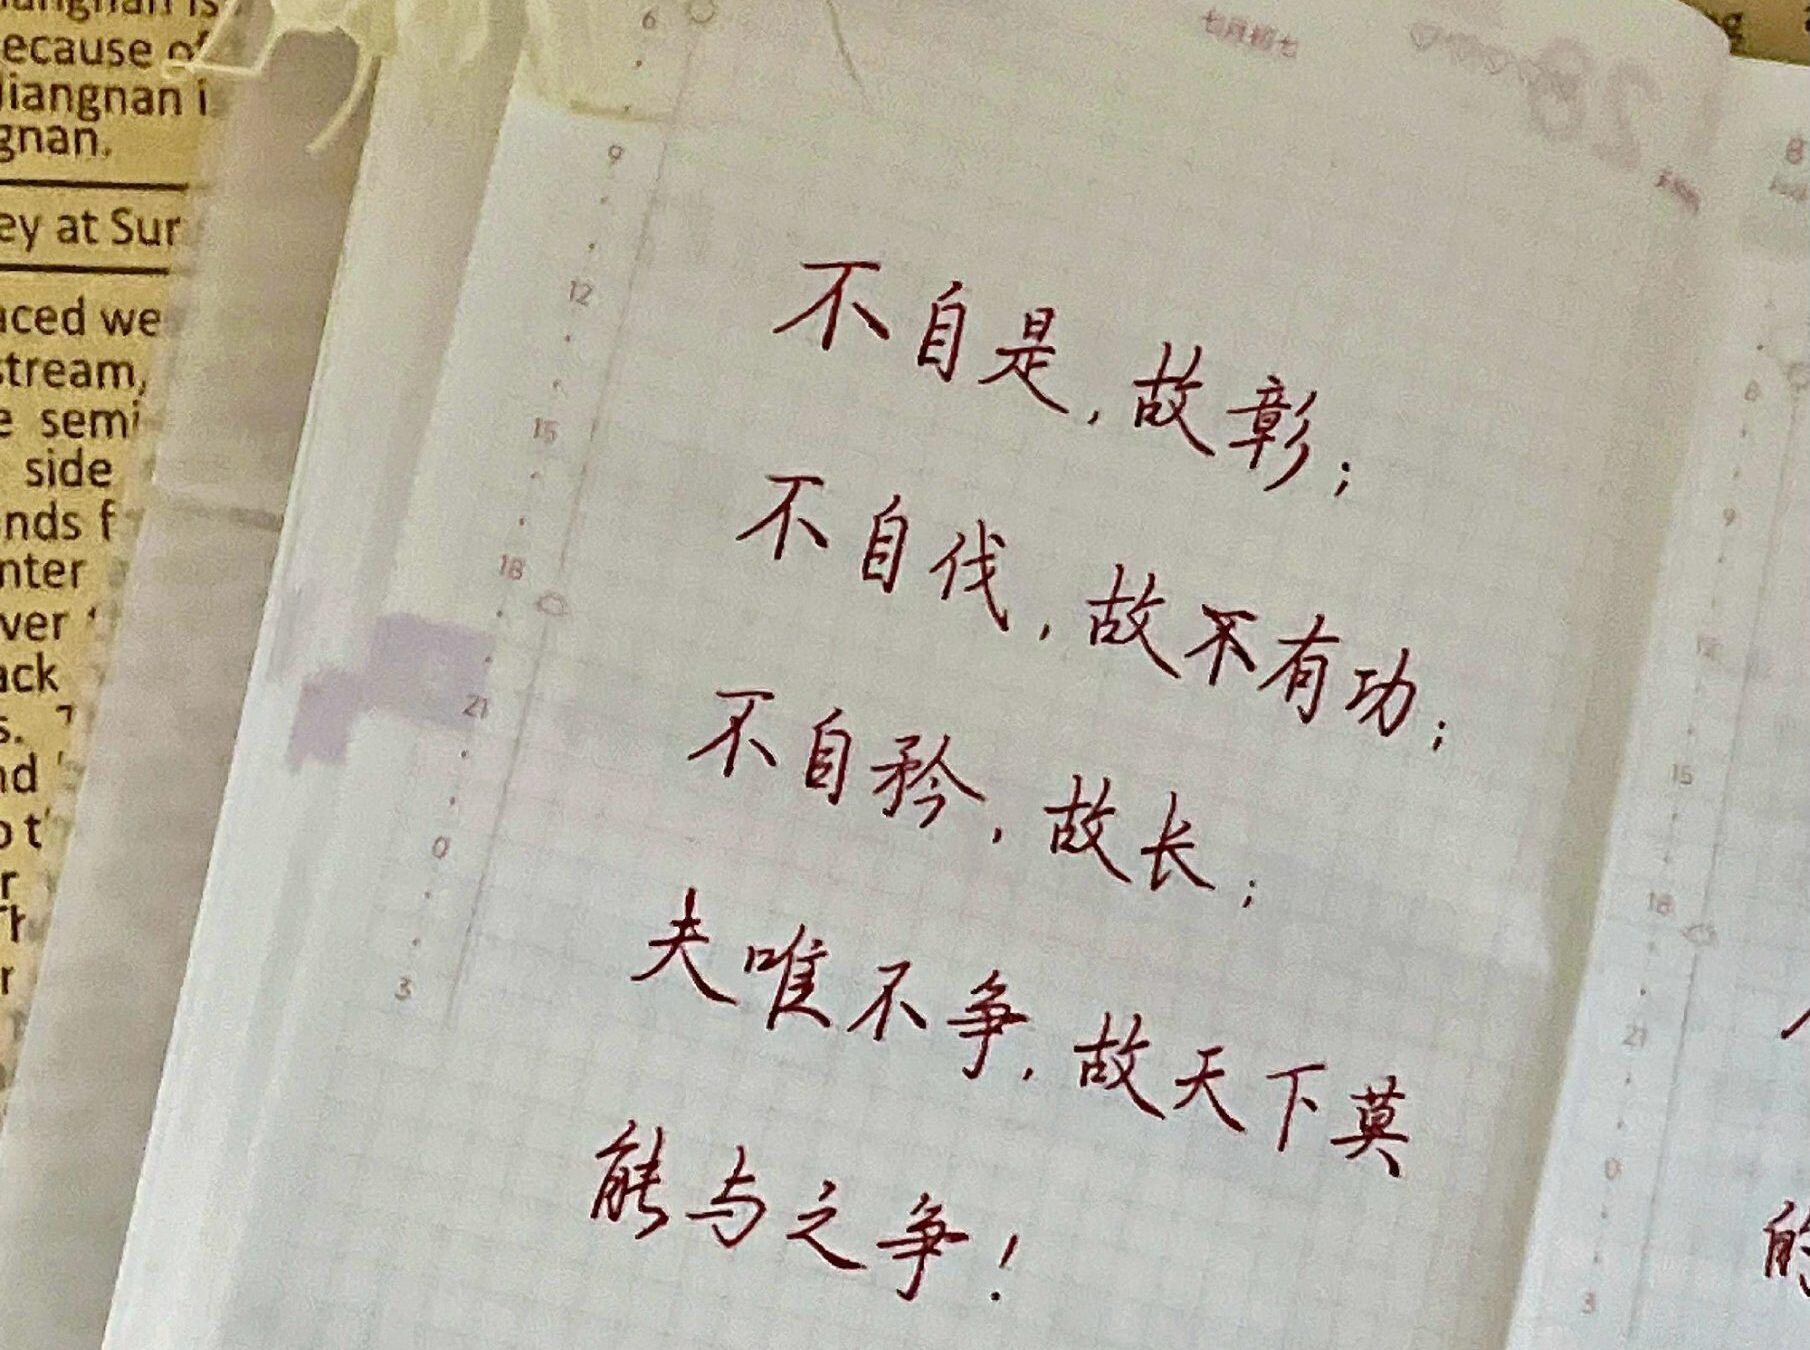 ecause of
Jiangnan i
gnan.
ey at Sur
aced we
stream,
e semi
side
onds f
nter
ver
ack
s.
nd
o t
r
Th
r
6
9
12
15
18
21
0
3
七月初七
28
不自是，故彰；
不自伐，故不有功；
不自矜，故长；
夫唯不争，故天下莫
能与之争！
8
6
9
12
15
18
21
0
3
的